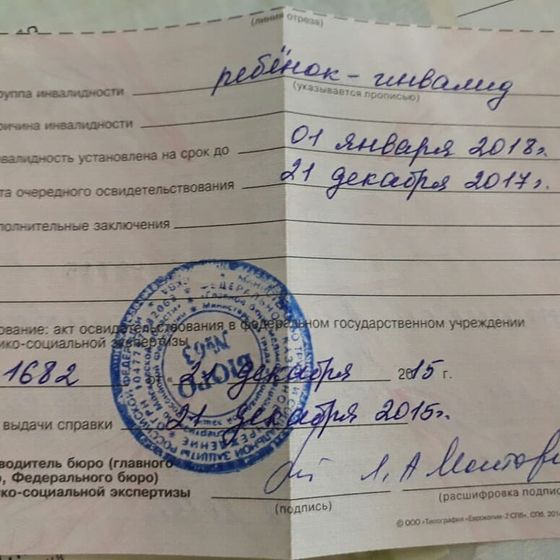 (линия отреза)
руппа инвалидности ребёнок - инвалид
(указывается прописью)
ричина инвалидности
нвалидность установлена на срок до 01 января 2018г.
та очередного освидетельствования 21 декабря 2017г.
полнительные заключения
ование: акт освидетельствования в федеральном государственном учреждении
ико-социальной экспертизы
1682 от 21 декабря 2015 г.
выдачи справки 21 декабря 2015г.
водитель бюро (главного
о, Федерального бюро)
ико-социальной экспертизы
(подпись)
(расшифровка подпис
БЮРО
№ 63
© ООО «Типография «Еврокопия-2 СПб», СПб, 201